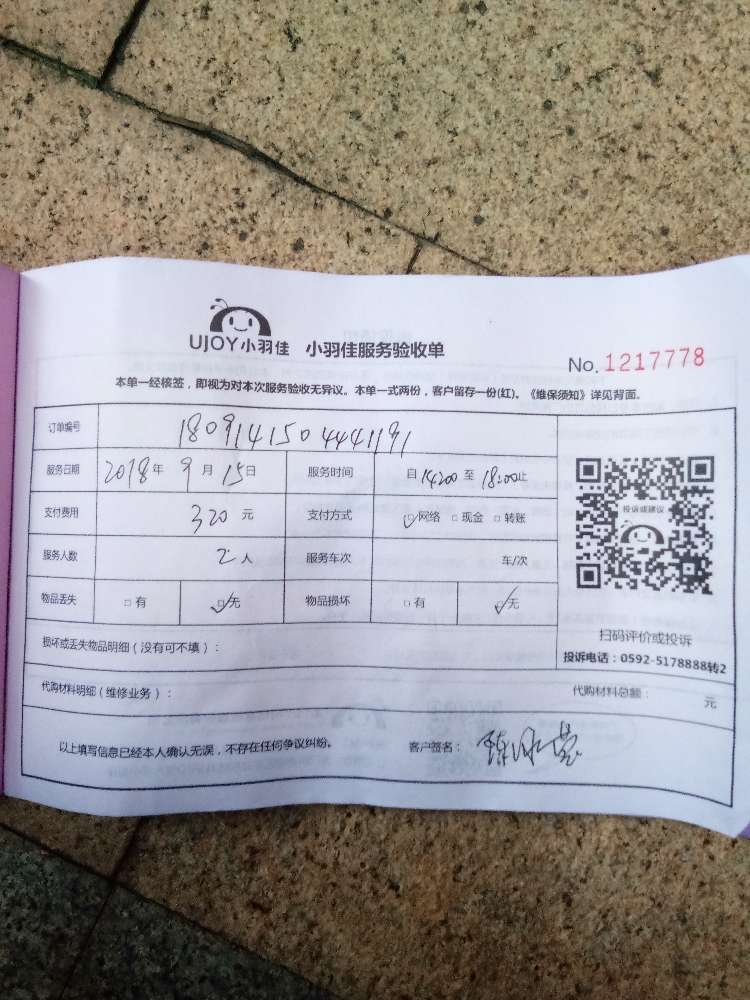 UJOY小羽佳 小羽佳服务验收单
No. 1217778
本单一经核签，即视为对本次服务验收无异议。本单一式两份，客户留存一份(红)。《维保须知》详见背面。
订单编号 1809141504441191
服务日期 2018年 9月 15日 服务时间 自 14:00 至 18:00止
支付费用 320 元 支付方式 ☑网络 □现金 □转账
投诉或建议
服务人数 2人 服务车次 车/次
物品丢失 □有 ☑无 物品损坏 □有 ☑无
扫码评价或投诉
损坏或丢失物品明细（没有可不填）：
投诉电话：0592-5178888转2
代购材料明细（维修业务）： 代购材料总额： 元
以上填写信息已经本人确认无误，不存在任何争议纠纷。 客户签名：